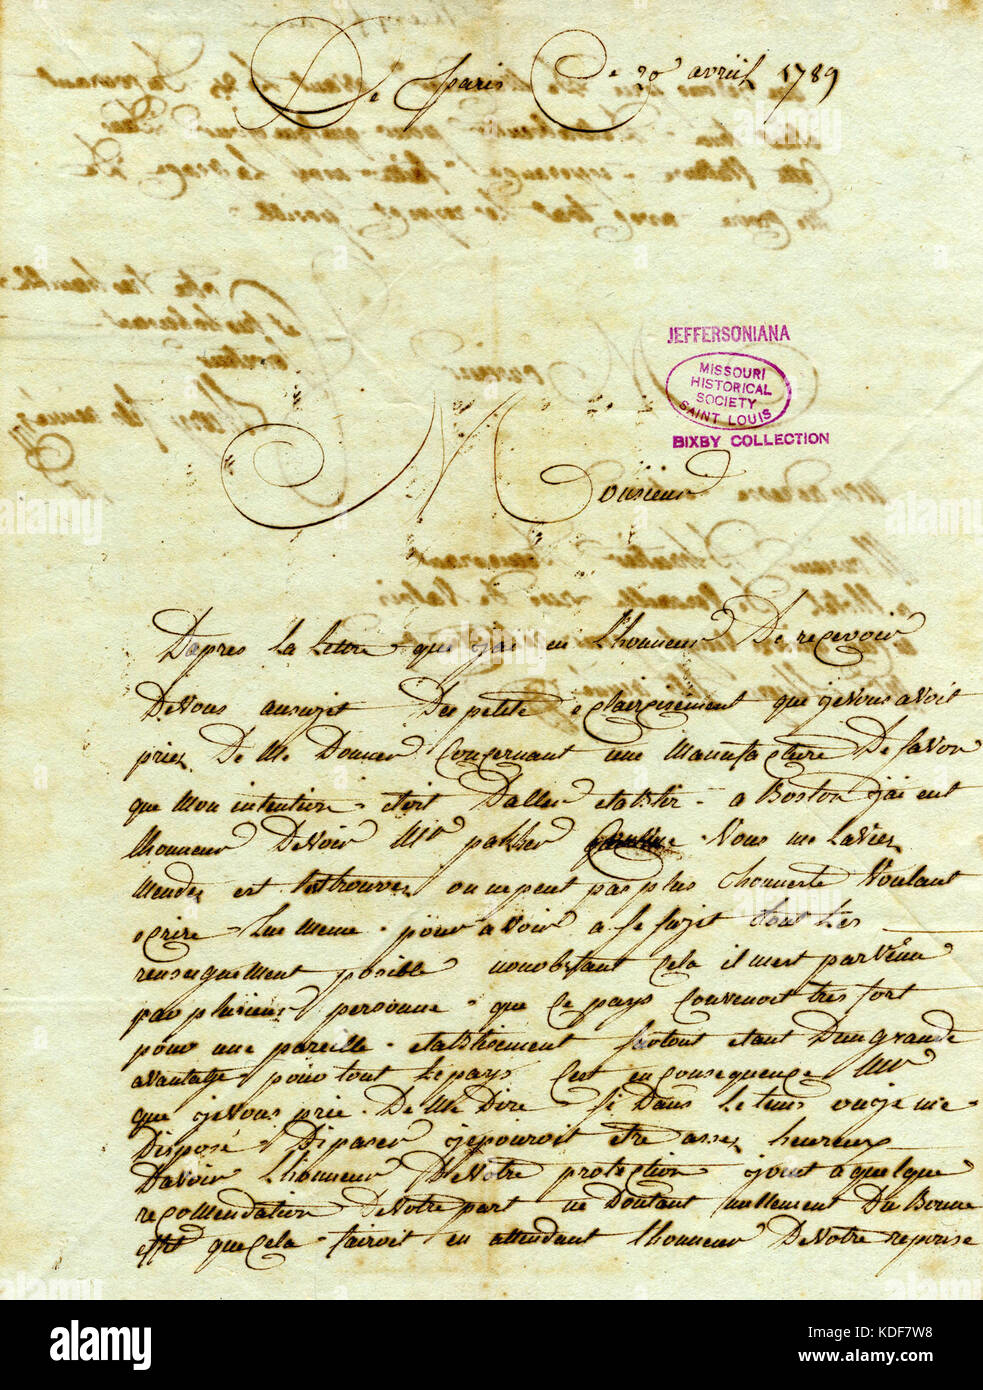 De paris Ce 30 avriil 1789
JEFFERSONIANA
MISSOURI
HISTORICAL
SOCIETY
SAINT LOUIS
BIXBY COLLECTION
Monsieur
Dapres La Lettre que j'ai eu l'honneur De recevoir
De vous au sujet Des petits eclaircissement que je vous avoit
priez De Me Donner Concernant une Manufacture De Savon
que Mon intention etoit D'aller etablir a Boston j'ai eut
lhonneur De voir Mr pakker vous me Laviez
Mendez est retrouvez on ne peut pas plus honnerte voulant
ecrire Lui meme pour avoir a se sujet tout Les
renseignement posible nonobstant Cela il mest parvenu
par plusieurs personne que Ce pays Convenoit tres fort
pour une pareille etablisement surtout etant D'un grande
avantage pour tout Le pays C'est en consequence Mr
que je vous prie De Me Dire si Dans Le tems ou je me
Disposé Di paser je pouroit etre assez heureux
D'avoir L'honneur De Votre protection joint a quelque
recomendation De Votre part ne Doutant nullement Du Bonne
effet que cela fairoit en attendant l'honneur De Votre reponse
alamy
Image ID: KDF7W8
www.alamy.com